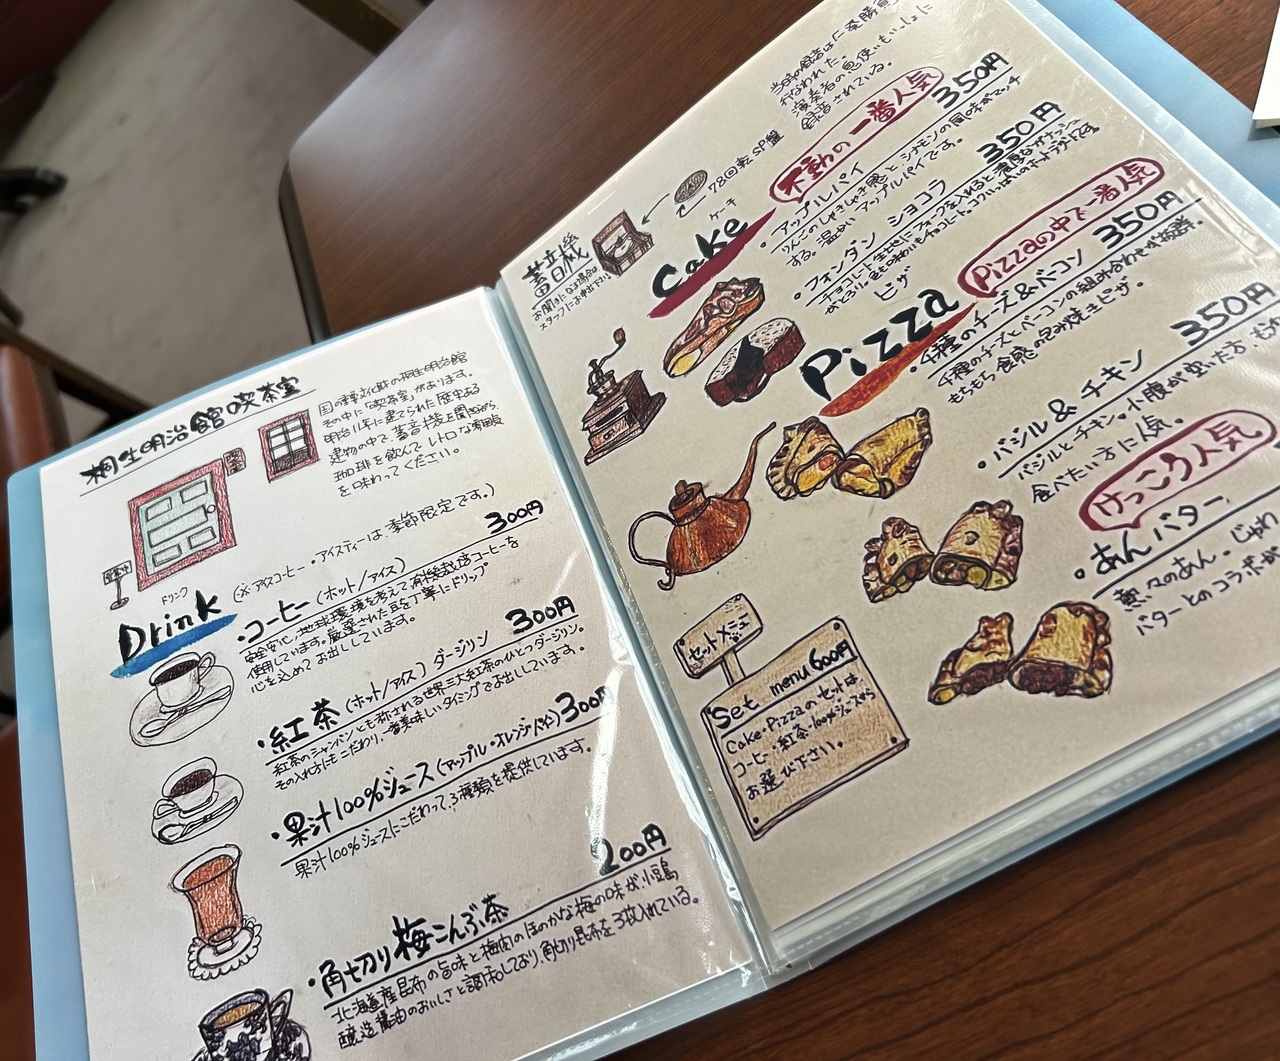 桐生明治館喫茶室
国の重要文化財の桐生明治館
その中に「喫茶室」があります。
明治11年に建てられた歴史ある
建物の中で、蓄音機を聞きながら、
珈琲を飲んでレトロな雰囲気
を味わってください。
営業中
(※アイスコーヒー・アイスティーは季節限定です。)
ドリンク
Drink
・コーヒー(ホット/アイス) 300円
安全安心、地球環境を考えて有機栽培コーヒーを
使用しています。厳選された豆を丁寧にドリップ
心を込めてお出ししています。
・紅茶(ホット/アイス)ダージリン 300円
紅茶のシャンパンとも称される世界三大紅茶のひとつダージリン。
その入れ方にもこだわり、一番美味しいタイミングでお出ししています。
・果汁100%ジュース(アップル・オレンジ・パイン)300円
果汁100%ジュースにこだわって、3種類を提供しています。
・角切り梅こんぶ茶 200円
北海道産昆布の旨味と梅肉のほのかな梅の味が、小豆島
醸造醤油のおいしさと調和しており、角切り昆布を3枚入れている。
当時の録音は「一発勝負」
行なわれた。
演奏者の息使いもいっしょに
録音されている。
78回転SP盤
蓄音機
お聞きになる場合は
スタッフにお申出下さい
ケーキ
Cake
不動の一番人気
・アップルパイ 350円
りんごのしゃきしゃき感と、シナモンの風味がマッチ
する。温かいアップルパイです。
・フォンダンショコラ 350円
チョコレート生地にフォークを入れると濃厚なガナッシュ
がとろり〜色も味わいもチョコレート。コクいっぱいのホットデザートです。
ピザ
Pizza
Pizzaの中で一番人気
・4種のチーズ&ベーコン 350円
4種のチーズとベーコンの組み合わせが抜群。
もちもち食感の包み焼きピザ。
・バジル&チキン 350円
バジルとチキン・小腹が空いた方、
食べたい方に人気。
けっこう人気
・あんバター
熱々のあん・じゅわ
バターとのコラボが
セットメニュー
Set menu 600円
Cake・Pizzaのセットは
コーヒー・紅茶・100%ジュースから
お選び下さい。